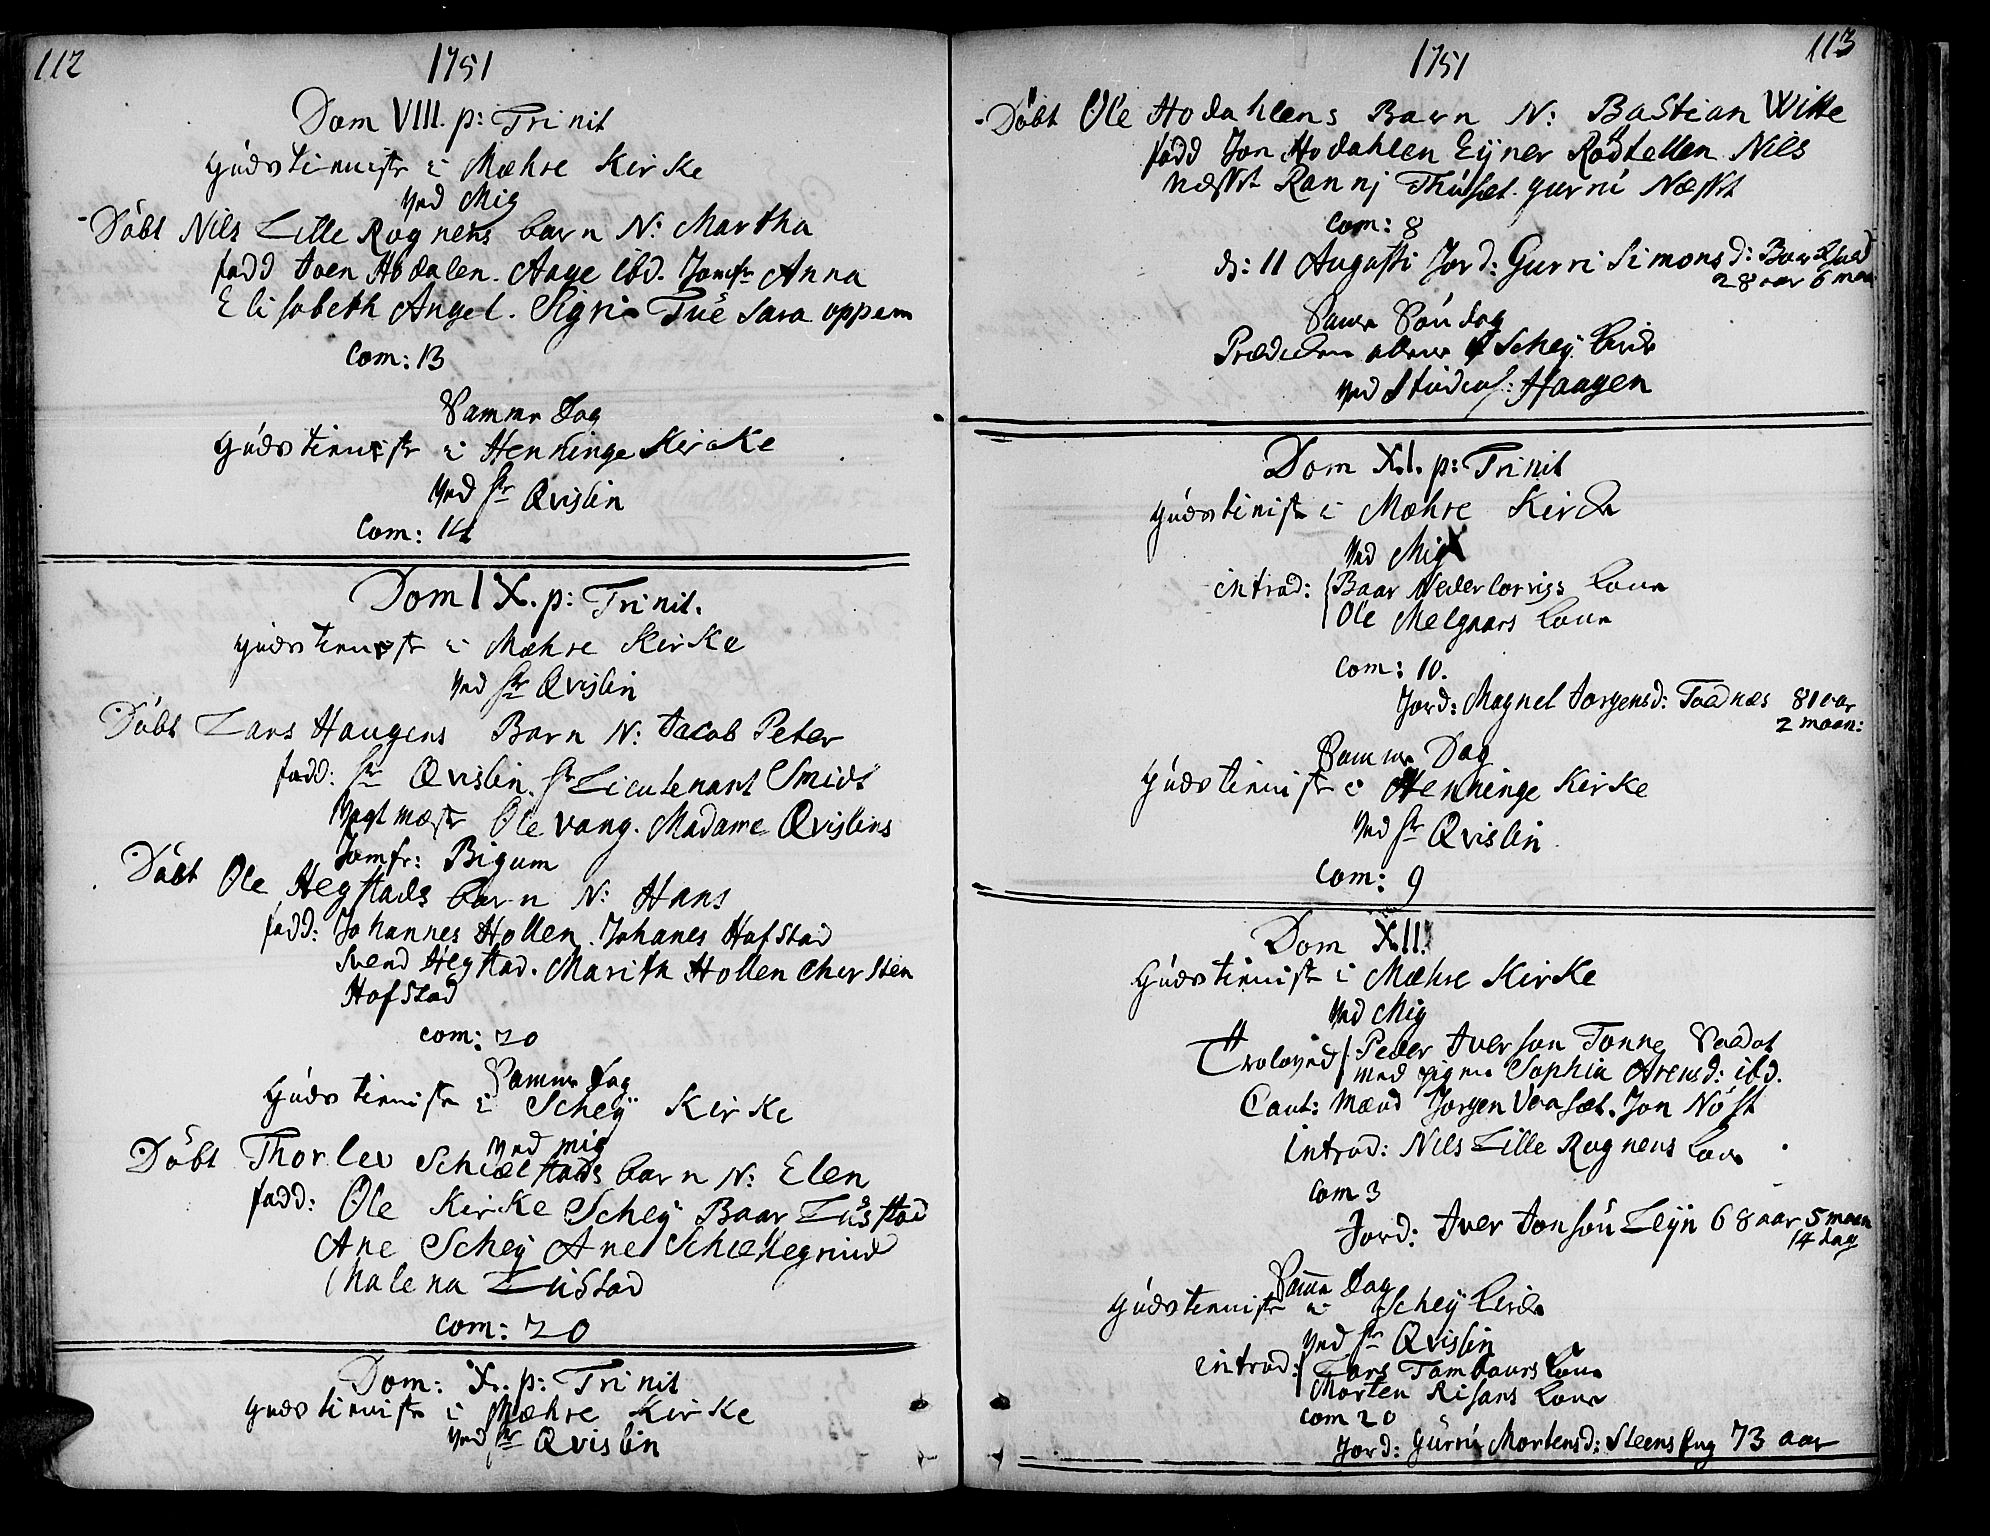 112
1751
Dom VIII. p: Trinit
Gudstienistr i Mæhre Kirke
ved Mig
Döbt Nils Lille Rognens barn N: Martha
fadd Joen Hodalen. Aage ibd. Jomfr Anna
Elisabeth Angel. Sigri Tue Sara oppem
Com: 13
Samme Dag
Gudstienistr i Henninge Kirke
ved Hr Qvislin
Com: 14
Dom IX. p: Trinit.
Gudstienistr i Mæhre Kirke
ved Hr Qvislin
Döbt Lars Haugens Barn N: Jacob Peter
fadd: Hr Qvislin. Hr Lieutenant Smidt
Vagtmæstr Ole Vang. Madame Qvislins
Jomfr: Bigum
Döbt Ole Hegstads barn N: Hans
fadd: Johannes Hollen. Johanes Hofstad
Svend Hegstad. Marith Hollen Chersten
Hofstad
Com: 20
Samme Dag
Gudstienistr i Schey Kirke
ved mig
Döbt Thorlev Schielstads barn N: Elen
fadd: Ole Kirke Schey Baar Lustad
Ane Schey Ane
Malena Lustad
Com: 20
Dom: X. p: Trinit
Gudstienistr i Mæhre Kirke
ved Hr Qvislin
113
1751
Döbt Ole Hodahlens Barn N: Bastian Witte
fadd Jon Hodahlen Eyner Rödtellen Nils
Næsset Rannj Thuset. Gurru Næsset
Com: 8
d: 11 Augusti Jord: Gurri Simonsd:
28 aar 6 maan
Samme Söndag
Prædicken allene i Schey Kirke
ved Studios: Haagen
Dom XI. p: Trinit
Gudstienistr i Mæhre Kirke
ved Mig
introd: Baar Nederlorvigs Kone
Ole Melgaars Kone
Com: 10.
Jord: Magnel Jorgensd: Taadnæs 81 aar
2 maan:
Samme Dag
Gudstienistr i Henninge Kirke
ved Hr Qvislin
Com: 9
Dom XII.
Gudstienistr i Mæhre Kirke
ved Mig
Troloved Peder Iverson Tonne Saldat
med pigen Sophia Arensd: ibd.
Caut: Mænd Jorgen Vaaset. Jon Nöst
introd: Nils Lille Rognens Kone
Com 3
Jord: Iver Jonsön Leyn 68 aar 5 maan
14 dag
Samme Dag
Gudstienistr i Schey Kirke
ved Hr Qvislin
introd: Lars Tambours Kone
Morten Risans Kone
Com 20
Jord: Gurru Mortensd: Steenshug 73 aar